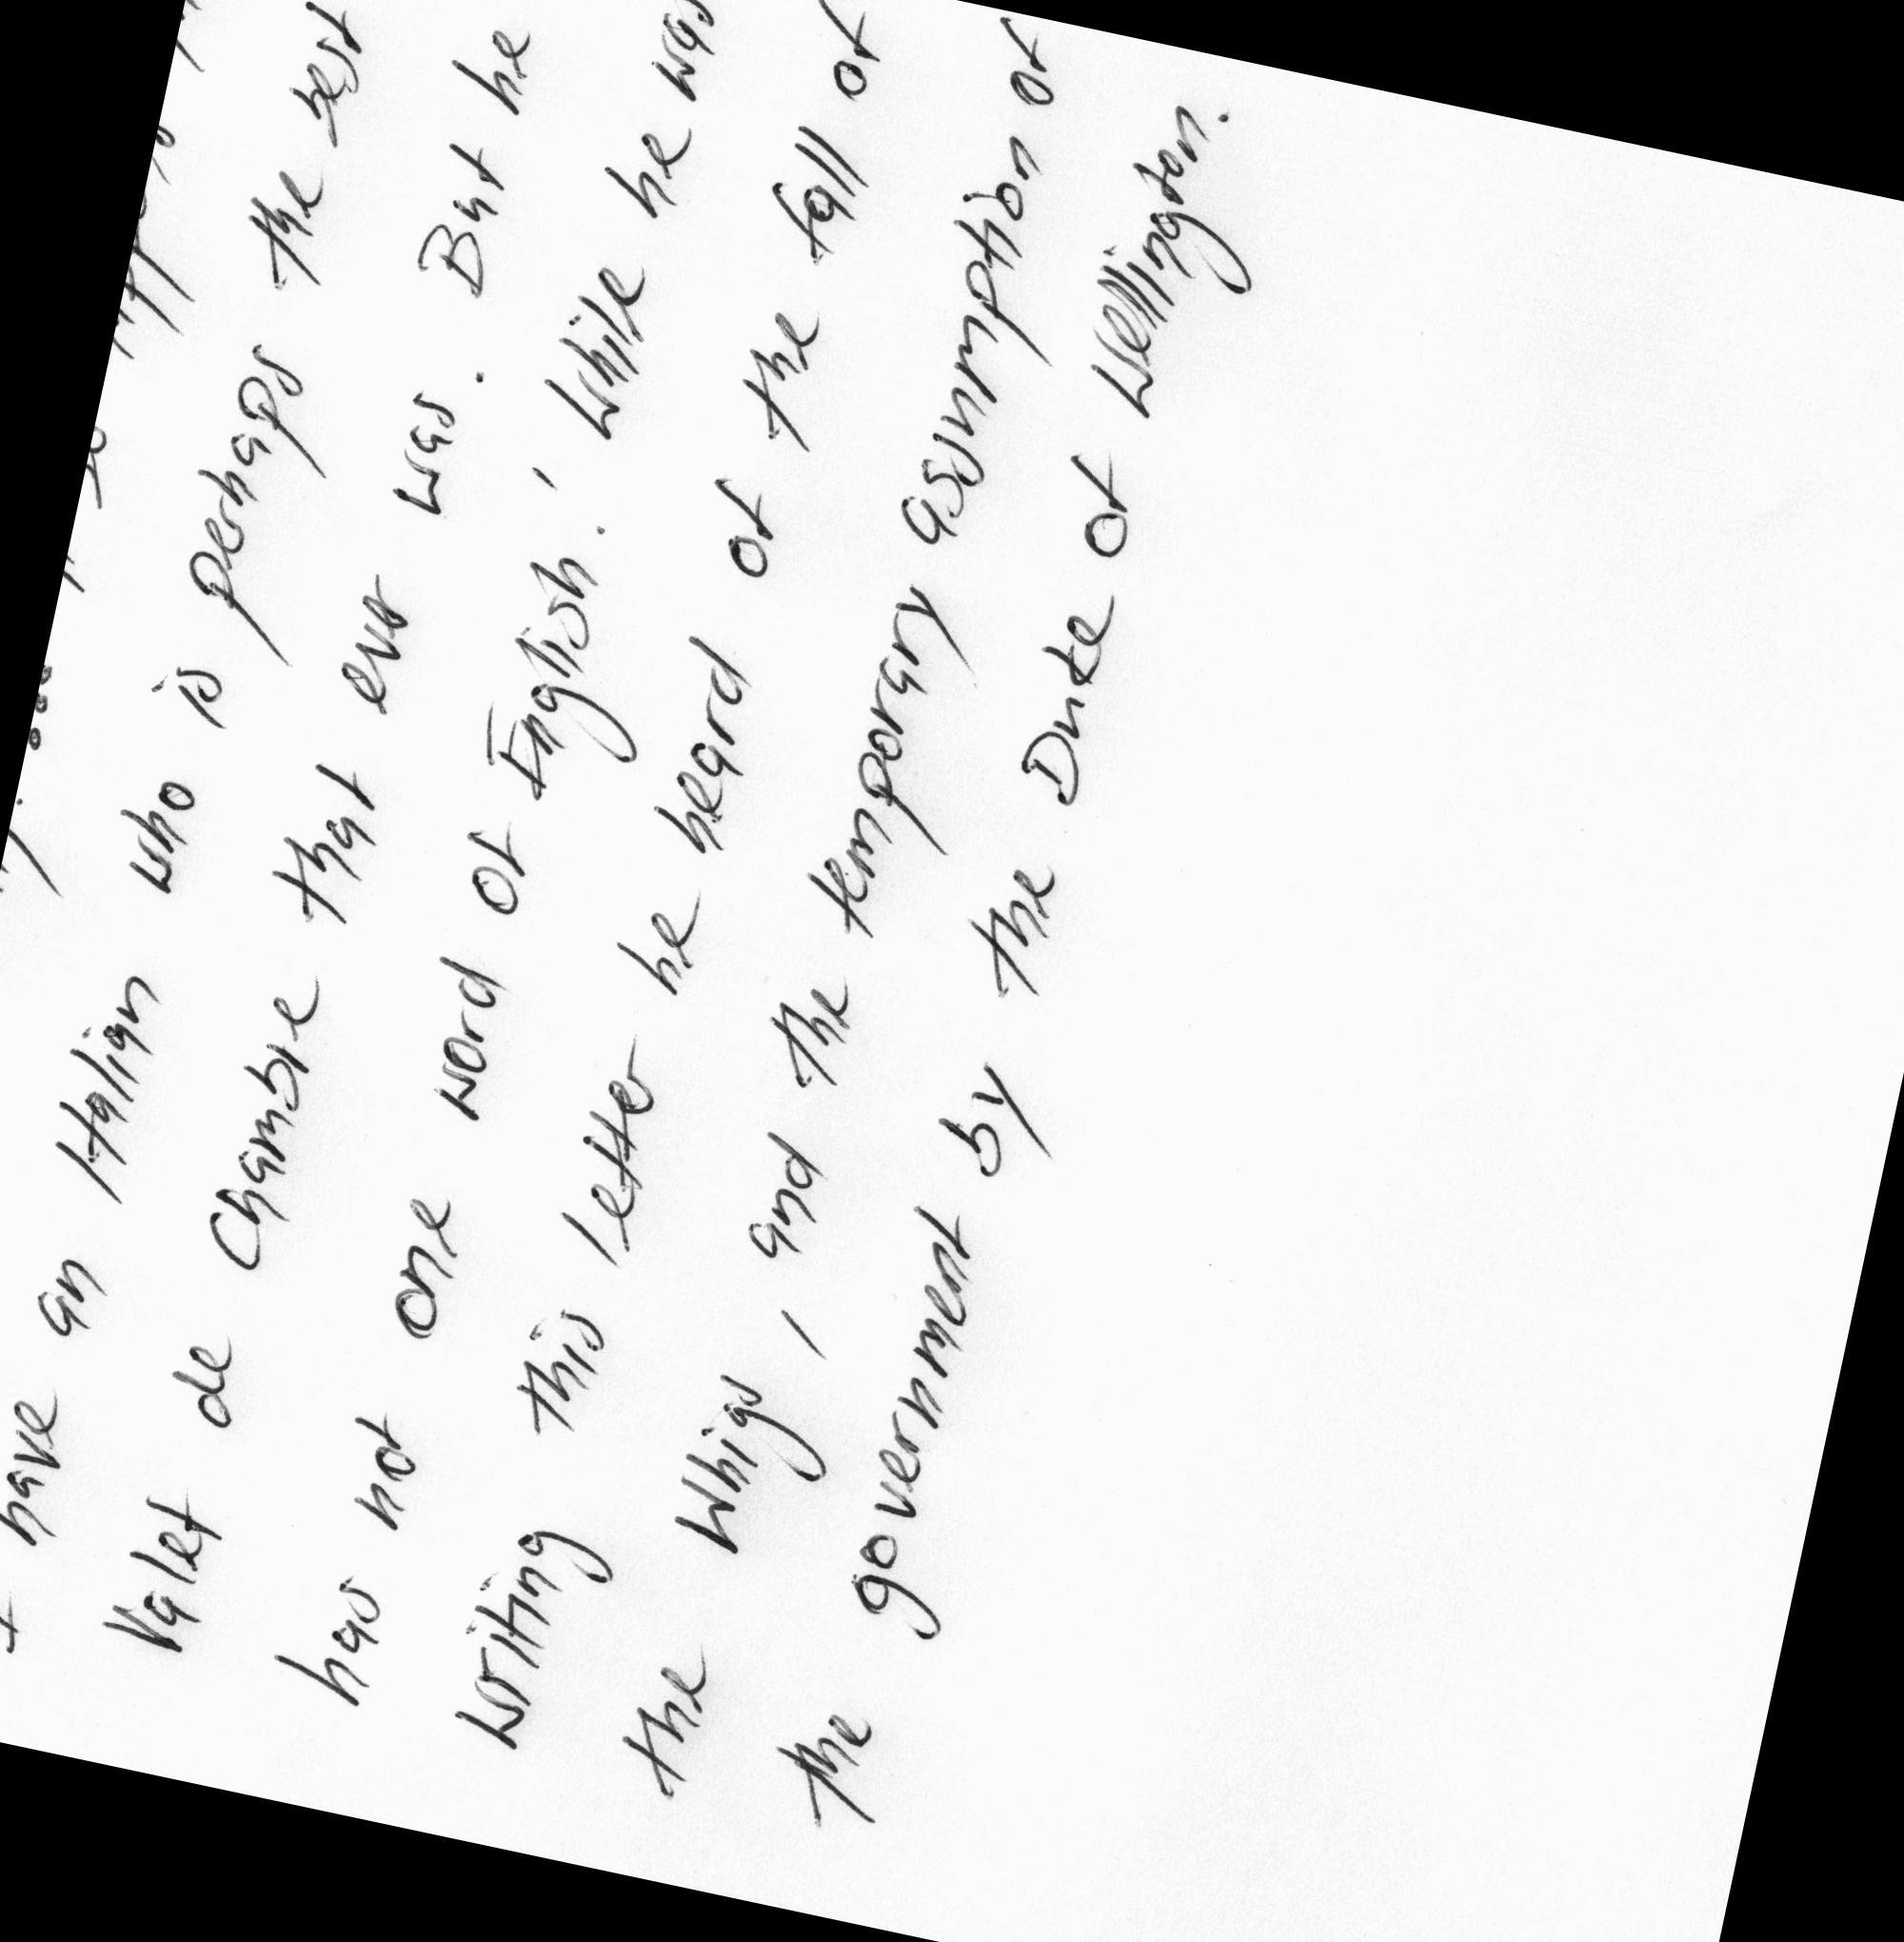 have an Italian who is perhaps the best
Valet de Chambre that ever was. But he
has not one word of English.' While he was
writing this letter he heard of the fall of
the Whigs, and the temporary assumption of
the government by the Duke of Wellington.